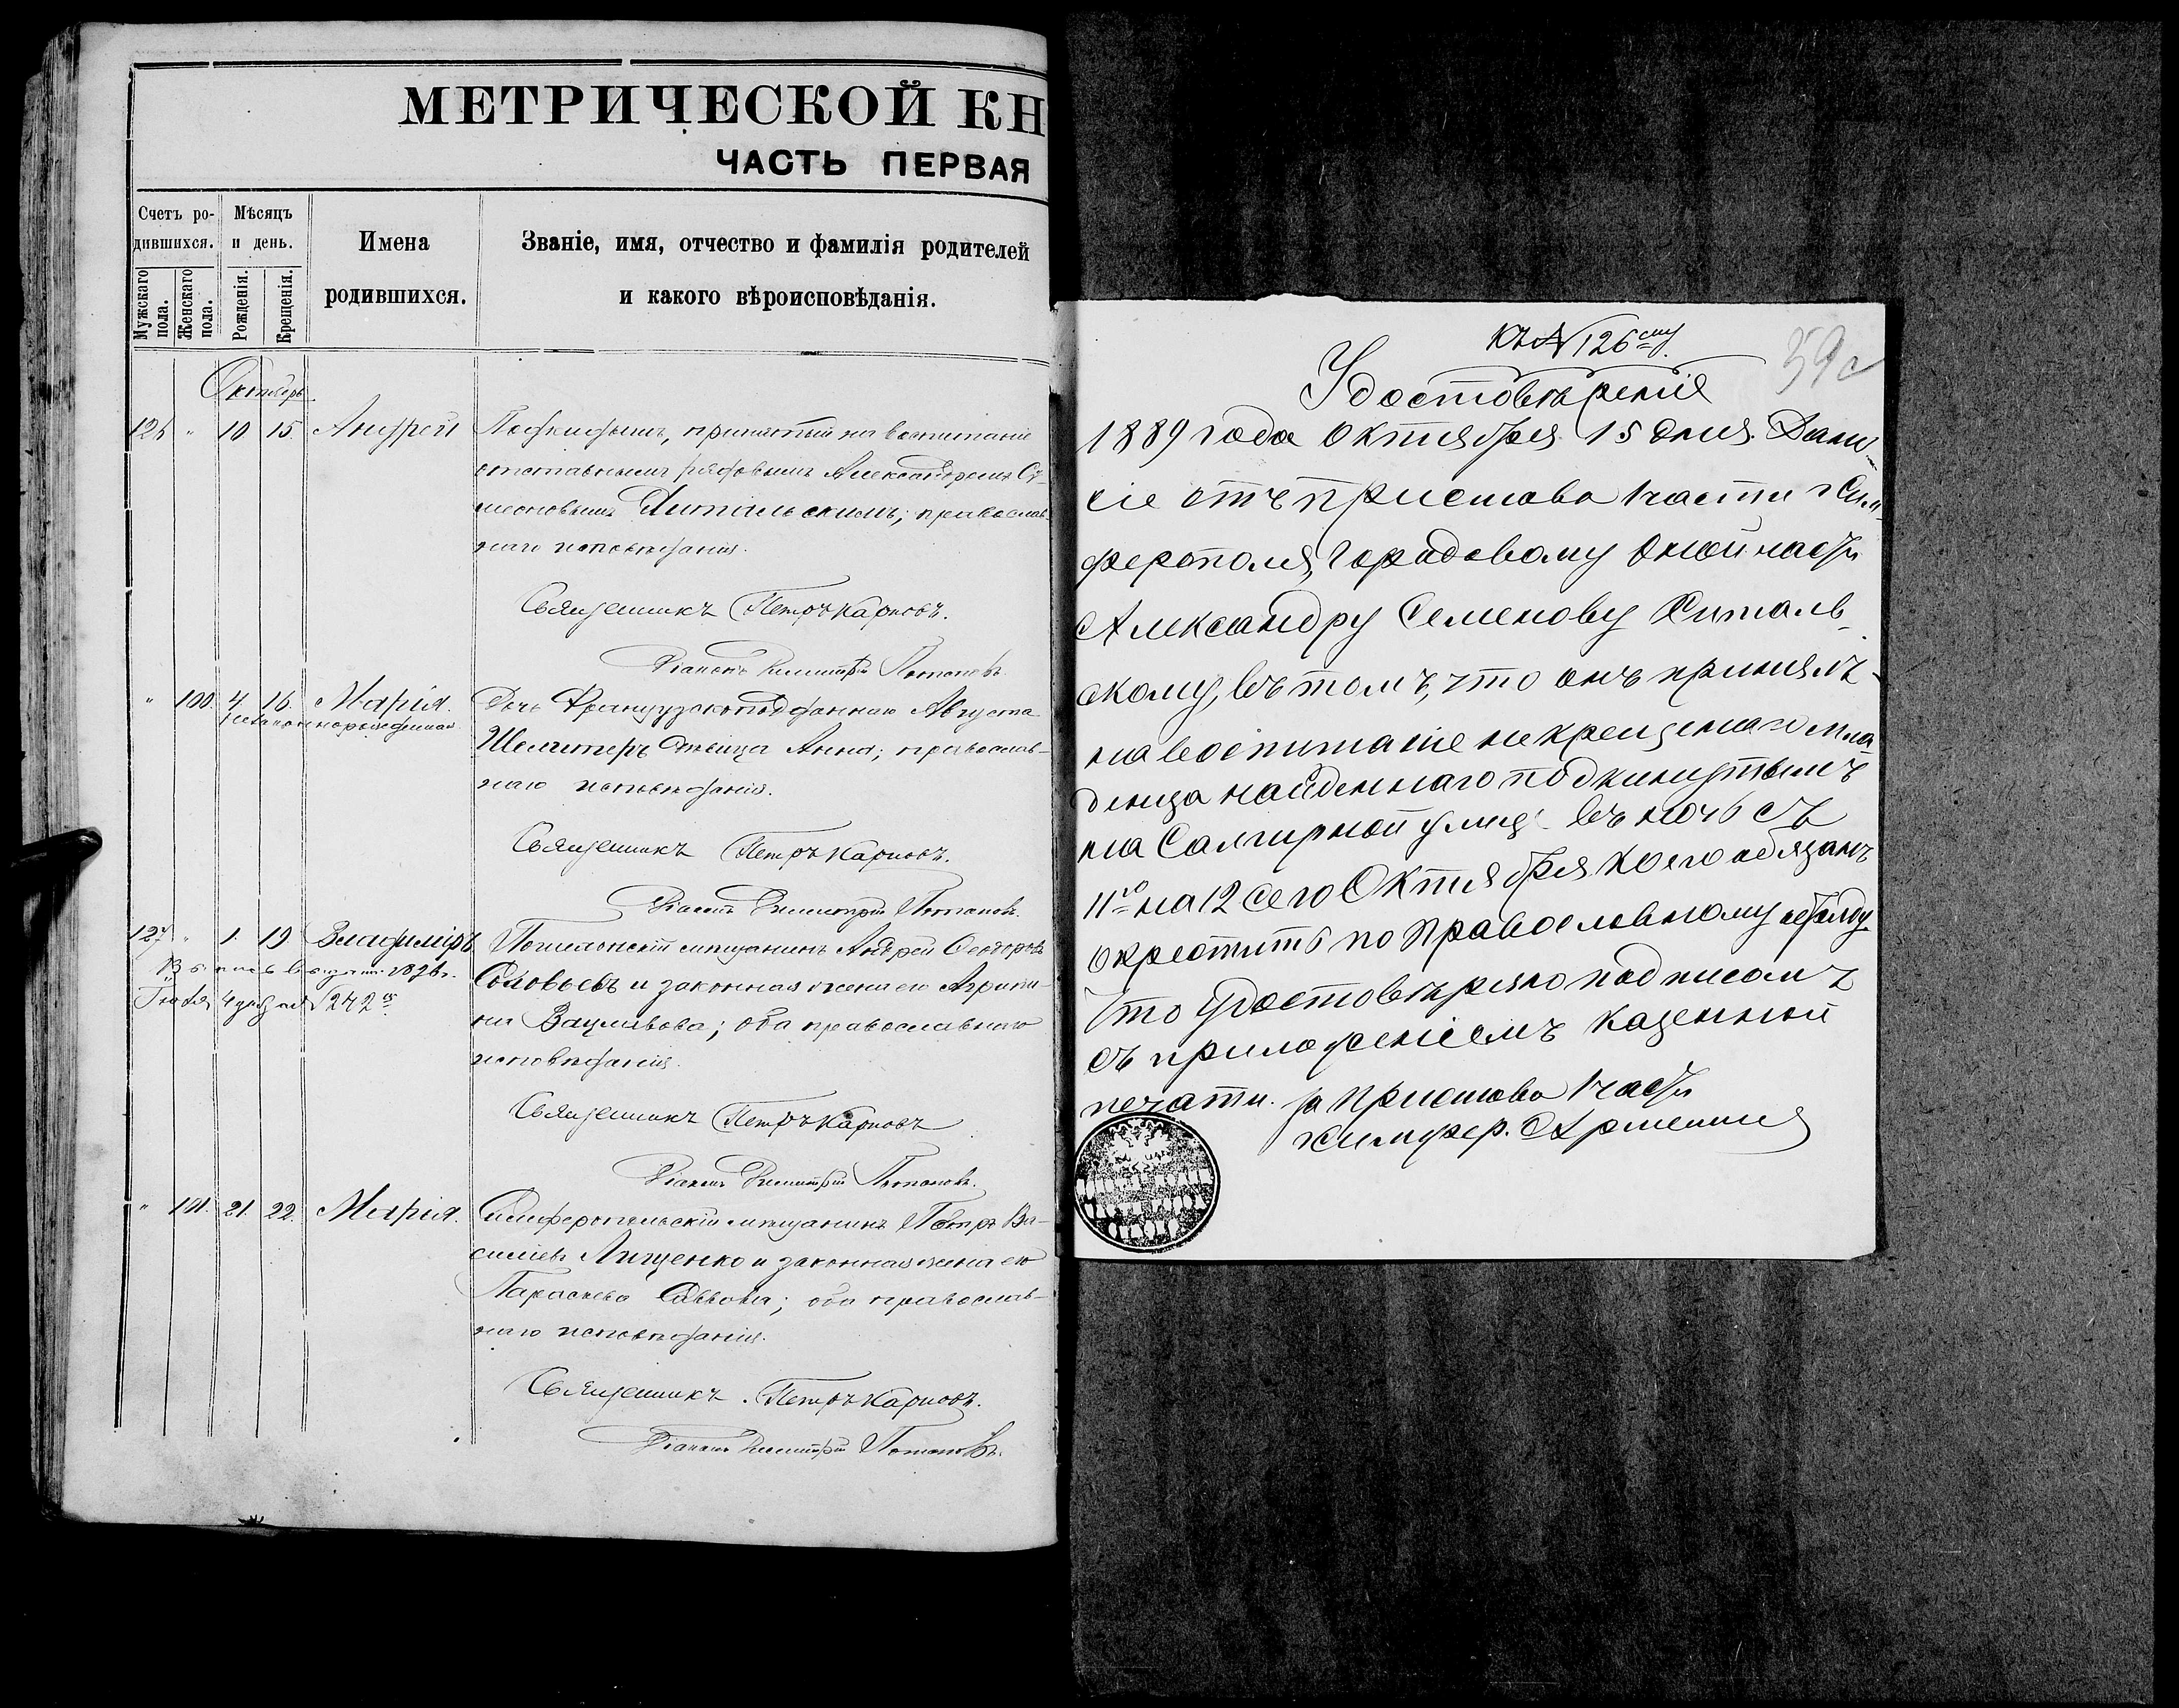 МЕТРИЧЕСКОЙ КН
ЧАСТЬ ПЕРВАЯ
Счетъ ро-
дившихся.
Мужскаго
пола.
Женскаго
пола.
Мѣсяцъ
и день.
Рожденія.
Крещенія.
Имена
родившихся.
Званіе, имя, отчество и фамилія родителей
и какого вѣроисповѣданія.
Октябрь.
126 " 10 15. Андрей Подкидышъ, принятый на воспитаніе
отставнымъ рядовымъ Александромъ Си-
меоновымъ православ-
наго исповѣданія.
Священникъ Петръ Карповъ.
Діаконъ Димитрій Потаповъ
" 100. 4. 16. Марія. Дочь Французскоподданнаго Августа
незаконнорожденная
дѣвица Анна; православ-
наго исповѣданія.
Священникъ Петръ Карповъ.
Діаконъ Димитрій Потаповъ.
127 " 1. 19 Владиміръ Мѣщанинъ Андрей Ѳеодоровъ
Соловьевъ и законная жена его Агрипи-
на оба православнаго
исповѣданія.
242
Священникъ Петръ Карповъ
Діаконъ Димитрій Потаповъ.
" 101. 21. 22. Марія. Симферопольскій мѣщанинъ Петръ Ва-
сильевъ Лищенко и законная жена его
Параскева Саввова; оба православ-
наго исповѣданія.
Священникъ. Петръ Карповъ.
Діаконъ Димитрій Потаповъ.
къ № 126му.
59
Удостовѣреніе
1889 года Октября 15 дня. Дано
сіе отъ пристава 1 части г Сим-
ферополя, Городовому оной части
Александру Семенову Хиталь-
скому, въ томъ, что онъ принялъ
на воспитаніе некрещенаго мла-
денца найденнаго подкинутымъ
на Салгирной улицѣ въ ночь съ
11го на 12 сего Октября коего обязанъ
окрестить по Православному обряду
что удостовѣряю подписомъ
съ приложеніемъ казенной
печати. за Пристава 1 части